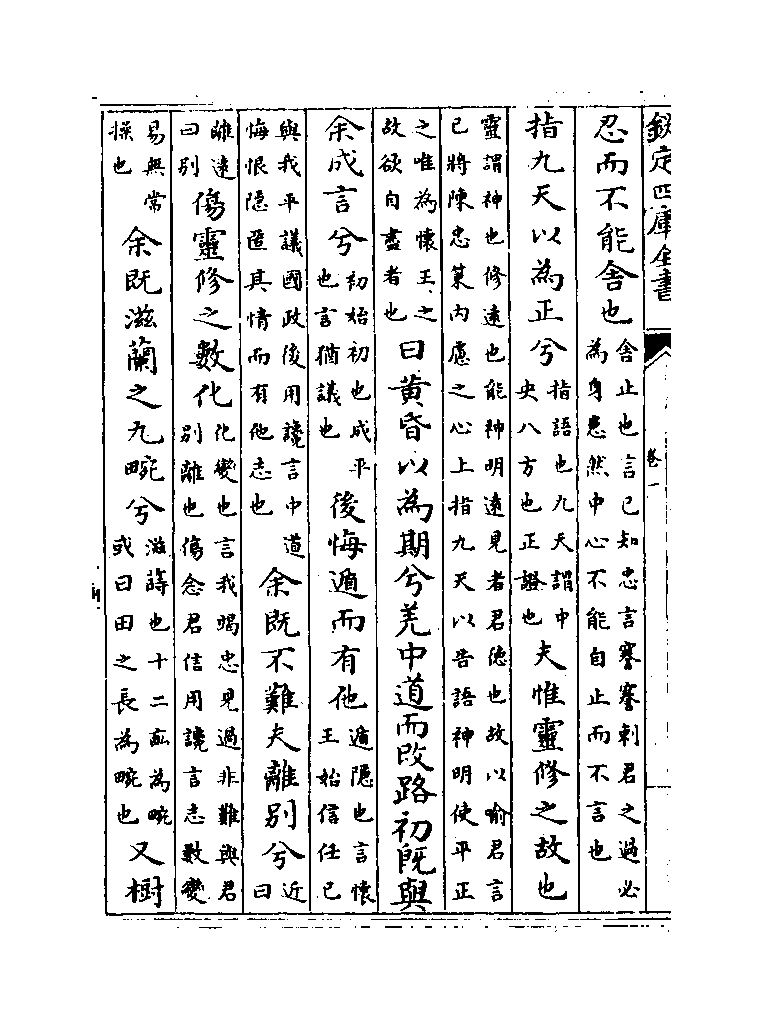 欽定四庫全書
卷一
忍而不能舍也舍止也言已知忠言謇謇刺君之過必為身患然中心不能自止而不言也
指九天以為正兮指語也九天謂中央八方也正證也夫惟靈修之故也
靈謂神也修遠也能神明遠見者君德也故以喻君言已將陳忠策内慮之心上指九天以告語神明使平正
之唯為懷王之故欲自盡者也曰黄昏以為期兮羌中道而改路初既與
余成言兮初始初也成平也言猶議也後悔遁而有他遁隱也言懷王始信任已
與我平議國政後用讒言中道悔恨隱匿其情而有他志也余既不難夫離别兮近曰
離遠曰别傷靈修之數化化變也言我竭忠見過非難與君别離也傷念君信用讒言志數變
易無常操也余既滋蘭之九畹兮滋蒔也十二畝為畹或曰田之長為畹也又樹